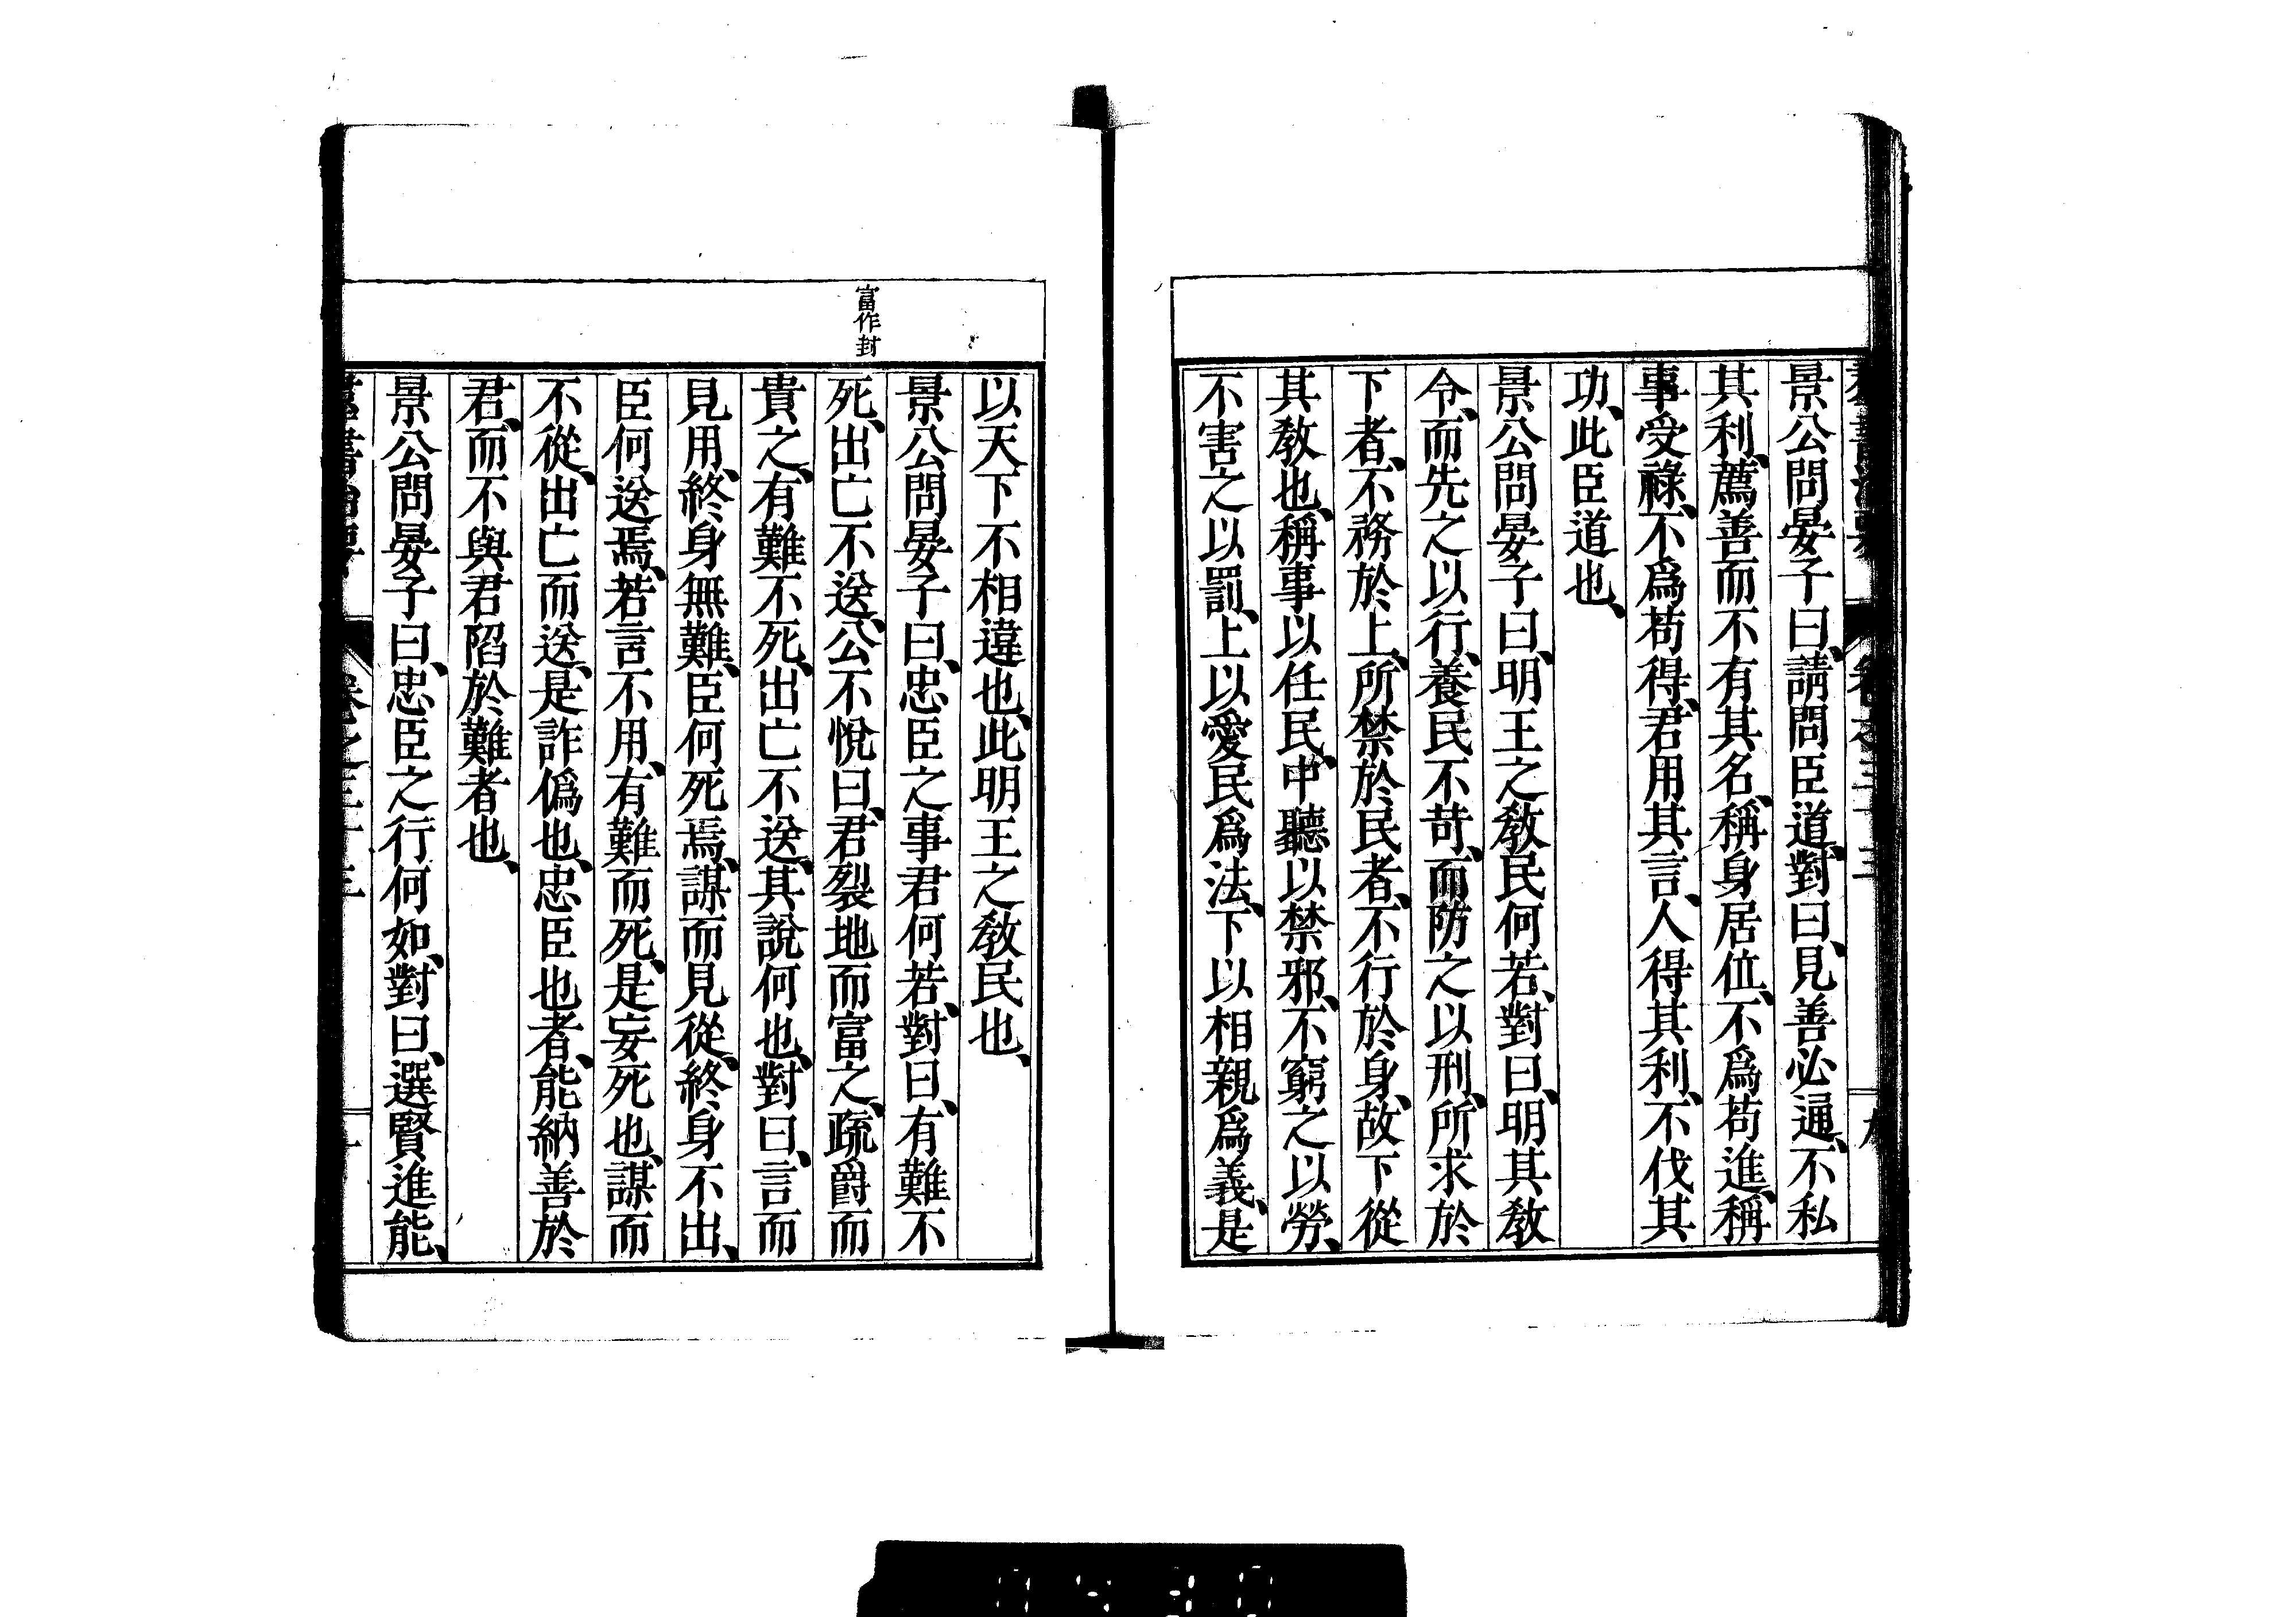 景公問晏子曰、請問臣道、對曰、見善必通、不私
其利、薦善而不有其名、稱身居位、不爲苟進、稱
事受祿、不爲苟得、君用其言、人得其利、不伐其
功、此臣道也、
景公問晏子曰、明王之敎民何若、對曰、明其敎
令、而先之以行、養民不苛、而防之以刑、所求於
下者、不務於上、所禁於民者、不行於身、故下從
其敎也、稱事以任民、中聽以禁邪、不窮之以勞、
不害之以罰、上以愛民爲法、下以相親爲義、是
以天下不相違也、此明王之敎民也、
富作封
景公問晏子曰、忠臣之事君何若、對曰、有難不
死、出亡不送、公不悅曰、君裂地而富之、疏爵而
貴之、有難不死、出亡不送、其說何也、對曰、言而
見用、終身無難、臣何死焉、謀而見從、終身不出、
臣何送焉、若言不用、有難而死、是妄死也、謀而
不從、出亡而送、是詐僞也、忠臣也者、能納善於
君、而不與君陷於難者也、
景公問晏子曰、忠臣之行何如、對曰、選賢進能、
卷之三十三